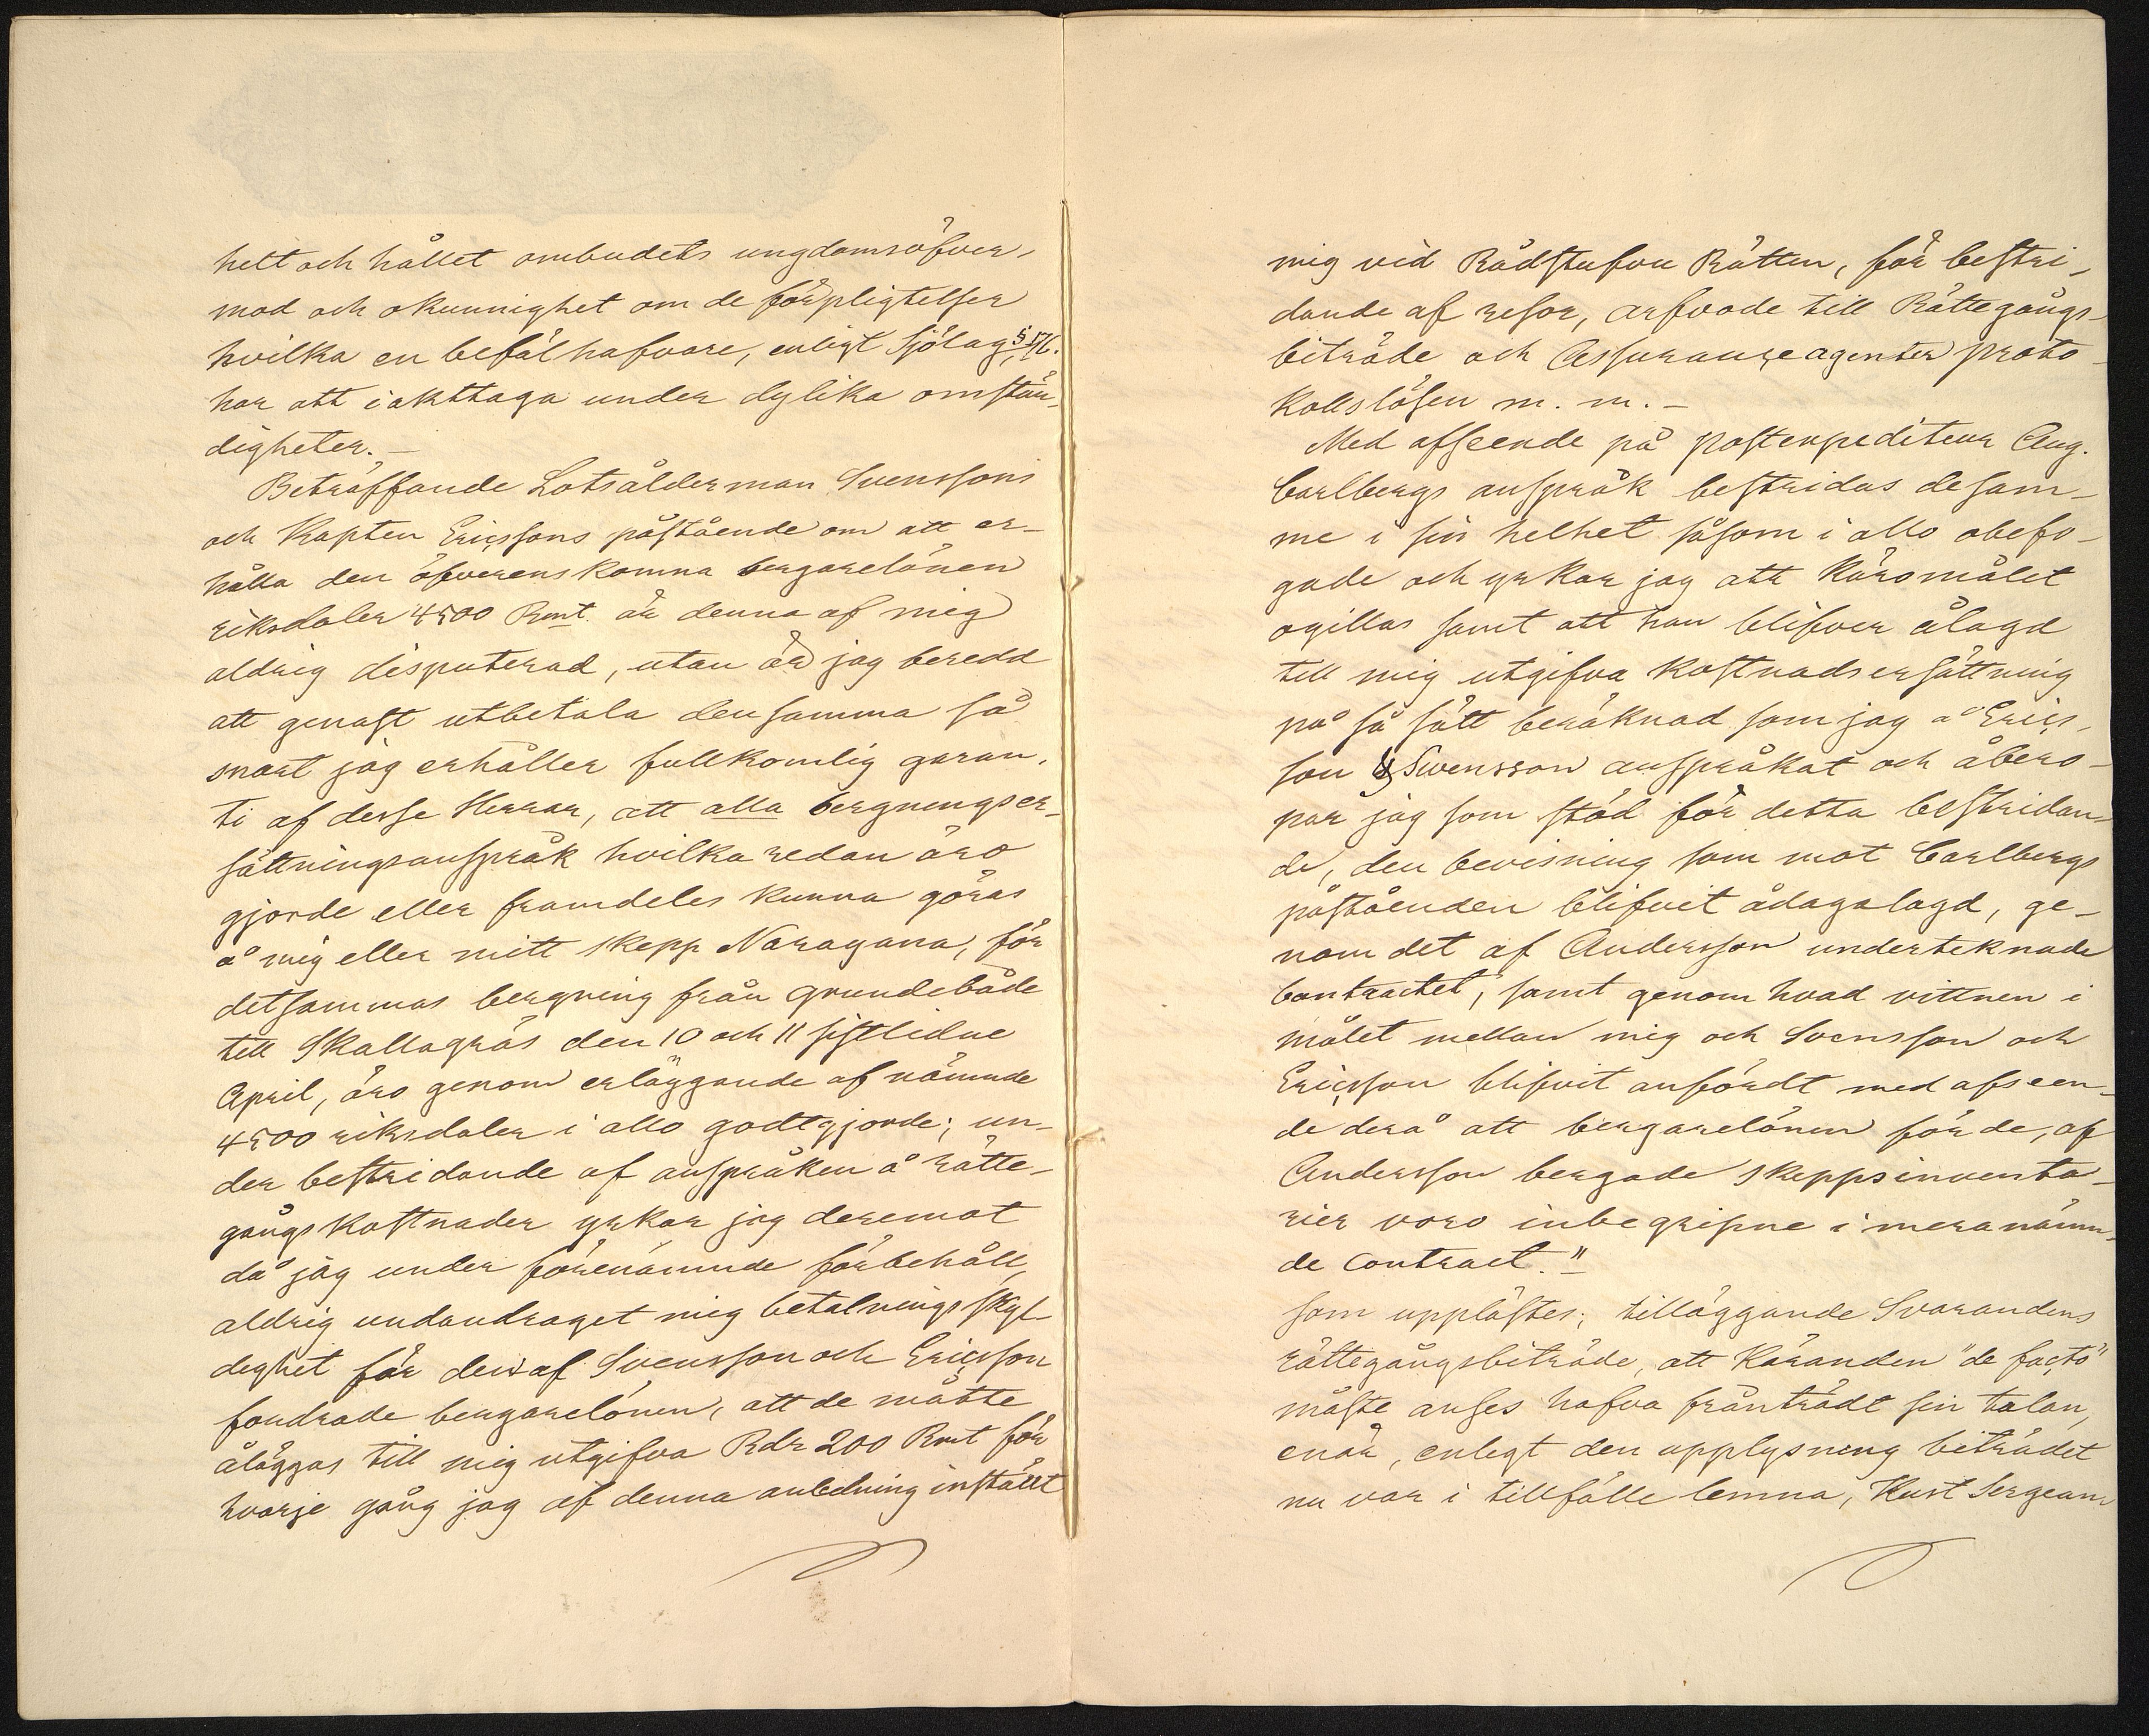 helt och hållet ombudets ungdomsöfver-
mod och okunnighet om de förpligtelser
hvilka en befälhafvare, enligt Sjölag §
har att iakttaga under dylika omstän-
digheter. —
Beträffande Lotsålderman Svenssons
och Kapten Ericssons påstående om att er-
hålla den öfverenskomna bergarelönen
riksdaler 4500 Rmt. är denna af mig
aldrig disputerad, utan är jag beredd
att genast utbetala densamma så
snart jag erhåller fullkomlig garan-
ti af desse Herrar, att alla bergningser-
sättningsanspråk hvilka redan äro
gjorde eller framdeles kunna göras
å mig eller mitt skepp Naragana, för
detsammas bergning från grundebåde
till Skallagräs den 10 och 11 sistlidne
April, äro genom erläggande af nämnde
4500 riksdaler i allo godtgjorde; un-
der bestridande af anspråken å rätte-
gångskostnader yrkar jag deremot
då jag under förenämnde förbehåll,
aldrig undandraget mig betalningsskyl-
dighet för den af Svensson och Ericsson
fordrade bergarelönen, att de måtte
åläggas till mig utgifva Rdr 200 Rmt för
hvarje gång jag af denna anledning inställt
mig vid Rådstufvu Rätten, för bestri-
dande af resor, arfvode till Rättegångs-
biträde och Assuranceagenter proto-
kollslösen m. m. —
Med afseende på postexpediteur Aug.
Carlbergs anspråk bestridas desam-
me i sin helhet såsom i allo obefo-
gade och yrkar jag att Käromålet
ogillas samt att han blifver ålagd
till mig utgifva kostnadsersättning
på så sätt beräknad som jag å Erics-
son & Swensson anspråkat och åbero-
par jag som stöd för detta bestridan-
de, den bevisning som mot Carlbergs
påståenden blifvit ådagalagd, ge-
nom det af Andersson undertecknade
Contractet, samt genom hvad vittnen i
målet mellan mig och Svensson och
Ericsson blifvit anfördt med afseen-
de derå att bergarelönen för de, af
Andersson bergade skeppsinventa-
rier voro inbegripne i meranämn-
de contract."
som upplästes; tilläggande Svarandens
rättegångsbiträde, att Käranden "de facto"
måste anses hafva frånträdt sin talan,
enär, enligt den upplysning biträdet
nu var i tillfälle lemna, Kust Sergean-